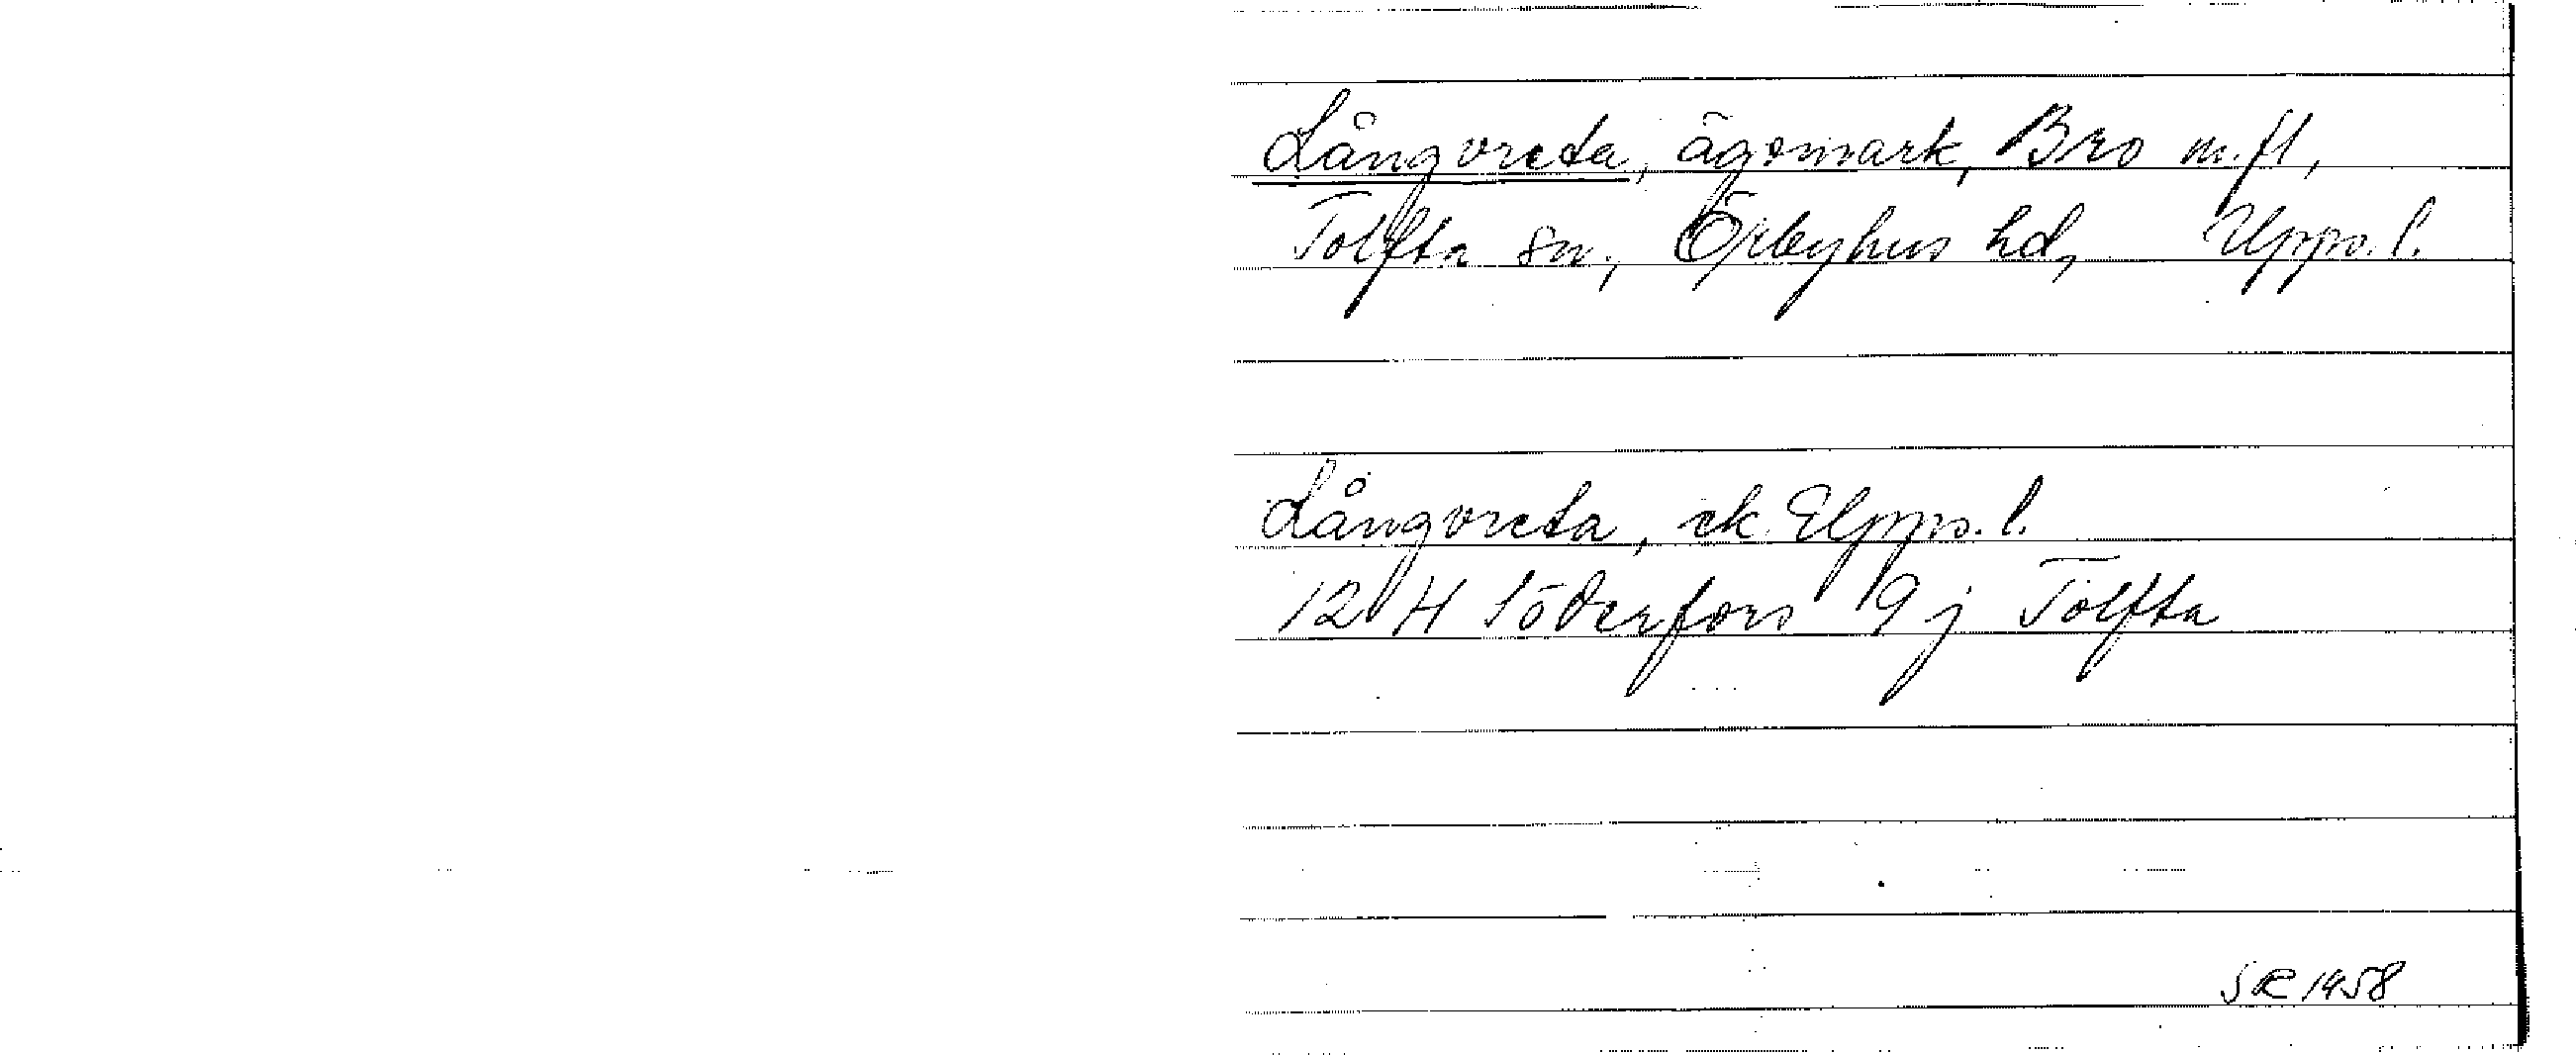 Långvreta, ägomark, Bro m.fl,
Tolfta sn., Örbyhus hd, Upps. l.
Långvreta, ek. Upps. l.
12 H Söderfors 9 j Tolfta
SR 1958